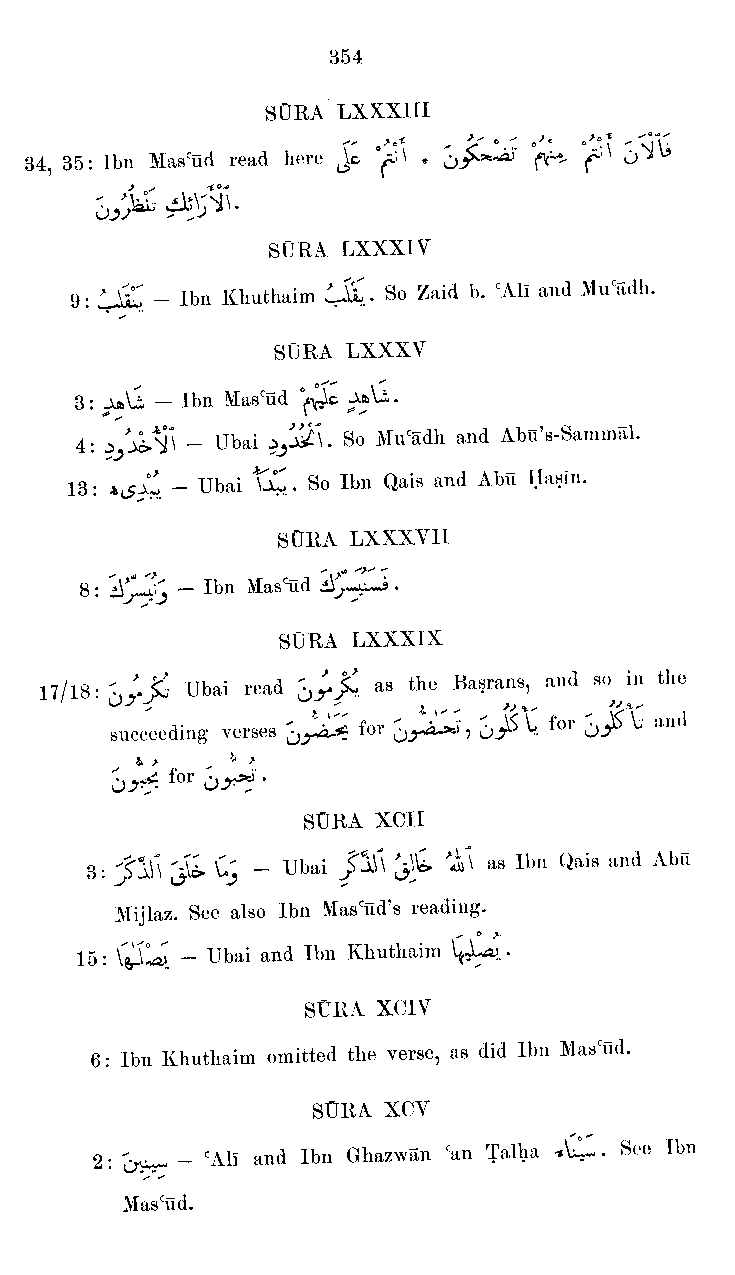 354
SŪRA LXXXIII
34, 35: Ibn Masʿūd read here فَٱلْآنَ أَنْتُمْ مِنْهُمْ تَضْحَكُونَ . أَنْتُمْ عَلَى
ٱلْأَرَائِكِ تَنْظُرُونَ.
SŪRA LXXXIV
9: يَنْقَلِبُ — Ibn Khuthaim يَقْلَبُ. So Zaid b. ʿAlī and Muʿādh.
SŪRA LXXXV
3: شَاهِدٍ — Ibn Masʿūd شَاهِدٍ عَلَيْهِمْ.
4: ٱلْأُخْدُودِ — Ubai ٱلْخُدُودِ. So Muʿādh and Abū's-Sammāl.
13: يُبْدِىء — Ubai يَبْدَأُ. So Ibn Qais and Abū Ḥaṣīn.
SŪRA LXXXVII
8: وَنُيَسِّرُكَ — Ibn Masʿūd فَسَنُيَسِّرُكَ.
SŪRA LXXXIX
17/18: تُكْرِمُونَ Ubai read يُكْرِمُونَ as the Baṣrans, and so in the
succeeding verses يَحَٰضُّونَ for تَحَٰضُّونَ, يَأْكُلُونَ for تَأْكُلُونَ and
يُحِبُّونَ for تُحِبُّونَ.
SŪRA XCII
3: وَمَا خَلَقَ ٱلذَّكَرَ — Ubai ٱللّٰهُ خَالِقُ ٱلذَّكَرِ as Ibn Qais and Abū
Mijlaz. See also Ibn Masʿūd's reading.
15: يَصْلَىٰهَا — Ubai and Ibn Khuthaim يُصْلِيهَا.
SŪRA XCIV
6: Ibn Khuthaim omitted the verse, as did Ibn Masʿūd.
SŪRA XCV
2: سِينِينَ — ʿAlī and Ibn Ghazwān ʿan Ṭalḥa سَيْنَاء. See Ibn
Masʿūd.